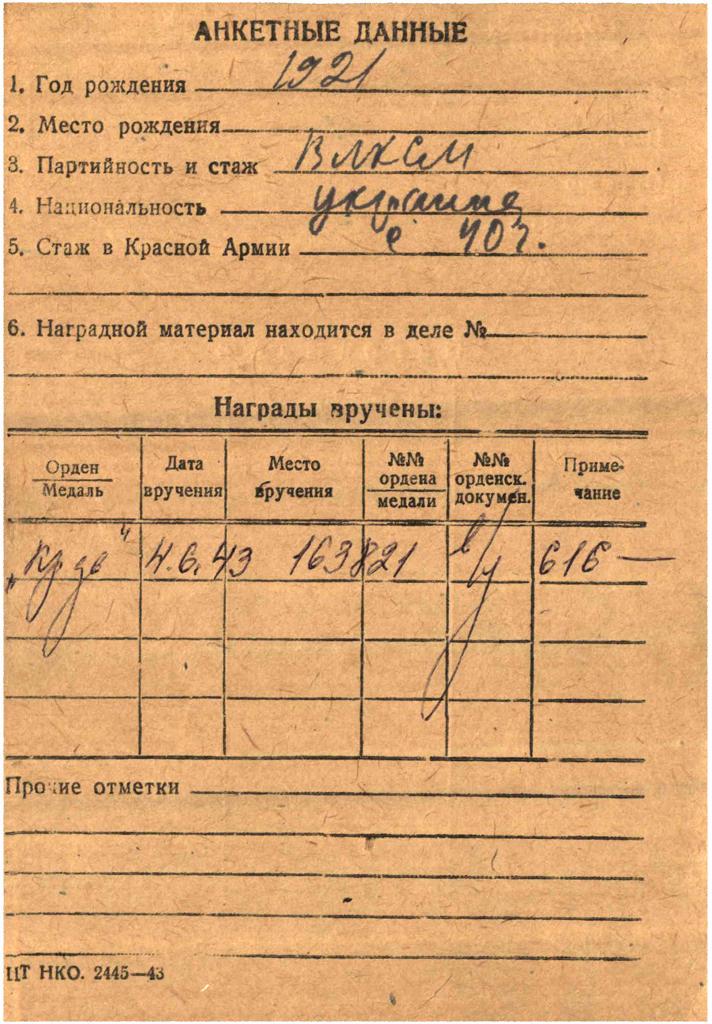 АНКЕТНЫЕ ДАННЫЕ
1. Год рождения 1921
2. Место рождения
3. Партийность и стаж ВЛКСМ
4. Национальность украинец
5. Стаж в Красной Армии с 40 г.
6. Наградной материал находится в деле №
Награды вручены:
Орден Медаль Дата вручения Место вручения №№ ордена медали №№ орденск. докумен. Примечание
4.6.43 163821 в/ч 616 —
Прочие отметки
ЦТ НКО. 2445—43